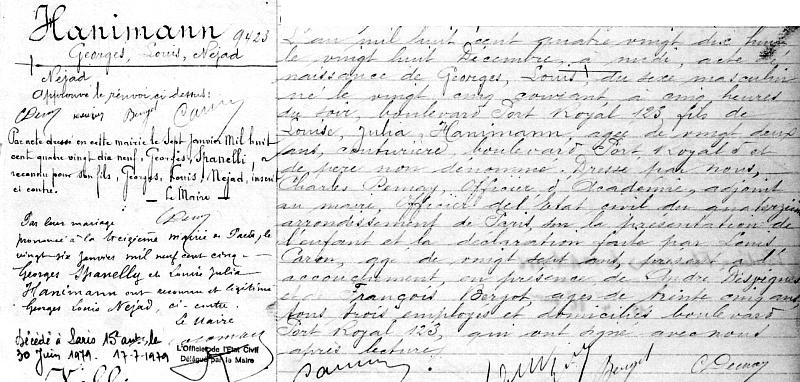 Hanimann 9423
Georges, Louis, Nejad
Nejad
Approuvé le renvoi ci dessus:
Par acte dressé en cette mairie le sept Janvier Mil huit
cent quatre vingt dix neuf, Georges, Spanelli, a
reconnu pour son fils, Georges, Louis, Nejad, inscrit
ci contre.
— Le Maire —
Par leur mariage
prononcé à la treizième mairie de Paris, le
vingt-six janvier mil neuf cent cinq —
Georges Spanelly et Louise Julia
Hanimann ont reconnu et légitimé
Georges Louis Nejad, ci-contre
le Maire
Décédé à Paris 15e arrt. le
30 Juin 1979. 17-7-1979
L'Officier de l'Etat Civil
Délégué par le Maire
L'an mil huit cent quatre vingt dix huit
le vingt huit Décembre à midi, acte de
naissance de Georges, Louis, du sexe masculin
né le vingt cinq courant à cinq heures
du soir, boulevard Port Royal 123, fils de
Louise, Julia, Hanimann, agée de vingt deux
ans, couturière boulevard Port Royal et
de père non dénommé. Dressé par nous,
Charles, Officier d'Académie, adjoint
au maire, Officier de l'Etat civil du quatorzième
arrondissement de Paris, sur la présentation de
l'enfant et la déclaration faite par Louis
Caron, agé de vingt sept ans, présent à l'
accouchement, en présence de André Desvignes
et François Bergot, agés de trente cinq ans,
tous trois employés et domiciliés boulevard
Port Royal 123, qui ont signé avec nous
après lecture.
Bergot